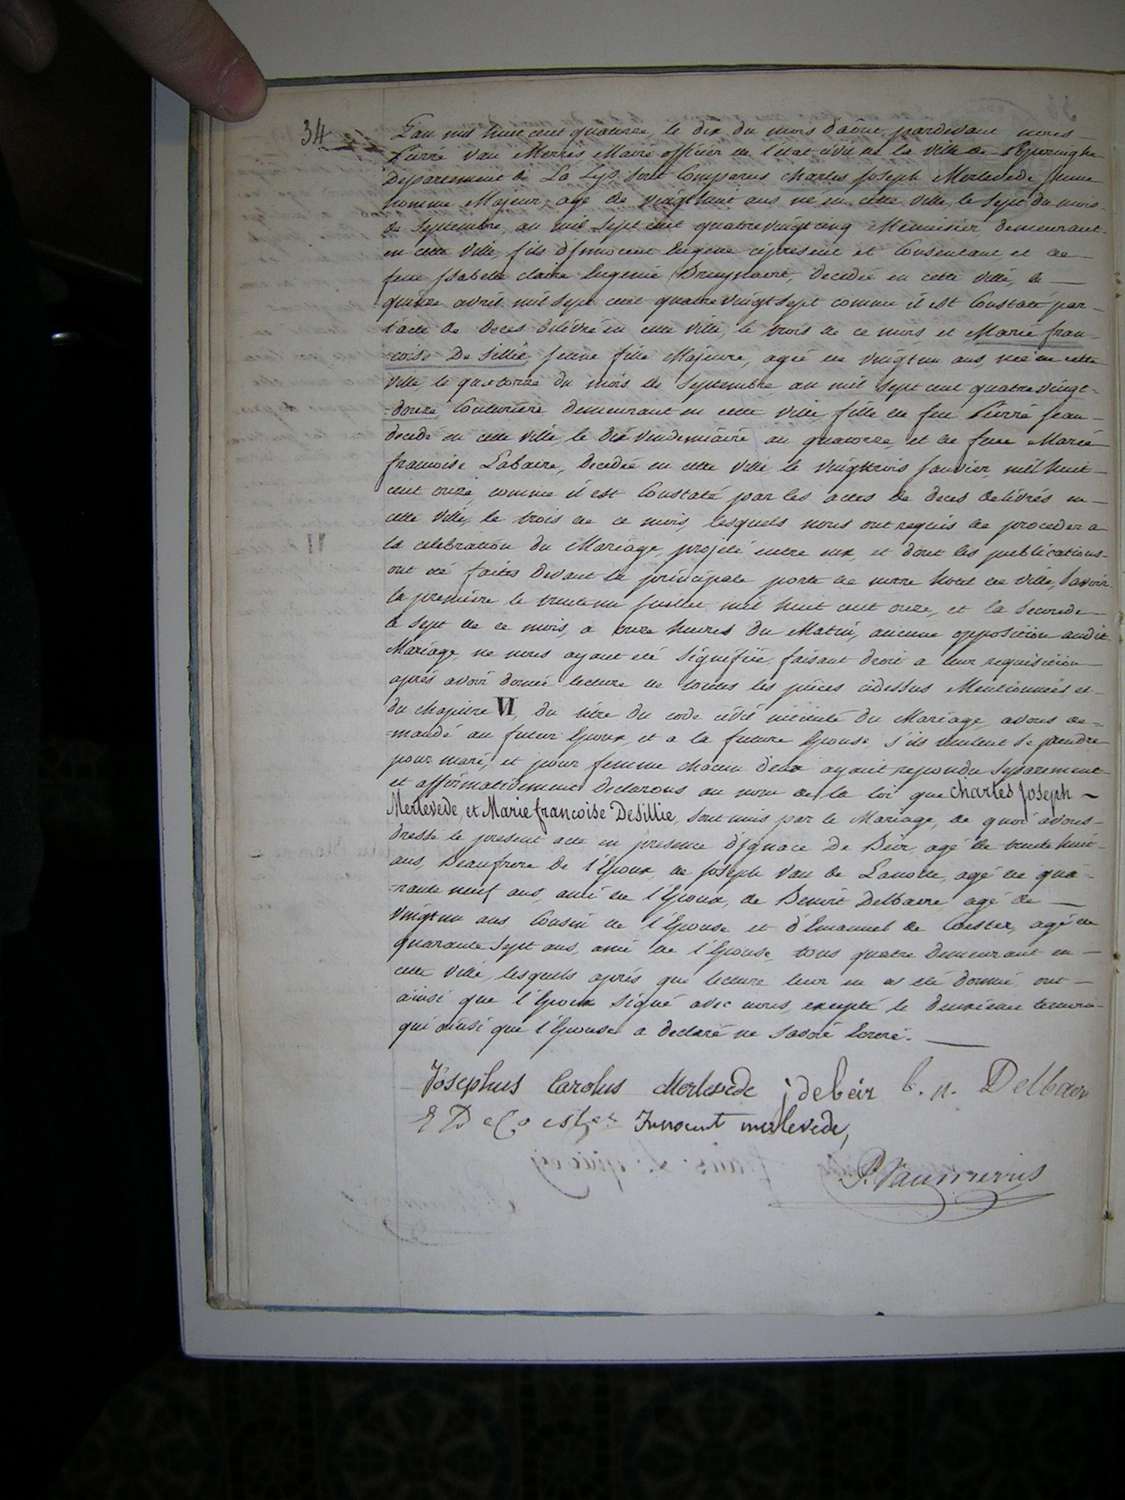 34
L'an mil huit cent quatorze, le dix du mois d'août, pardevant nous
Pierre Van Merris Maire officier de l'état civil de la ville de Poperinghe
Departement de La Lys, sont Comparus charles Joseph Merlevede jeune
homme Majeur, agé de vingthuit ans, né en cette ville, le sept du mois
de Septembre, an mil sept cent quatrevingtcinq Menuisier demeurant
en cette ville, fils d'Innocent Eugene ci present et Consentant et de
feue Isabelle claire Eugenie Bruynaert, decedée en cette ville, le
quinze avril mil sept cent quatrevingtsept comme il est Constaté par
l'acte de deces delivré en cette ville, le trois de ce mois, et Marie fran-
-coise De Sillie, jeune fille Majeure, agée de vingtun ans, née en cette
ville le quatorze du mois de Septembre an mil sept cent quatrevingt-
-douze Couturiere demeurant en cette ville, fille de feu Pierre Jean
decedé en cette ville le dix vendemiaire an quatorze, et de feue Marie
francoise Labaere, decedée en cette ville le vingttrois Janvier, mil huit
cent onze, comme il est Constaté par les actes de deces delivrés en
cette ville, le trois de ce mois, lesquels nous ont requis de proceder a
la celebration du Mariage, projeté entre eux, et dont les publications
ont été faites devant la principale porte de notre hotel de ville, Savoir
la premiere le trente un Juillet mil huit cent onze, et la seconde
le sept de ce mois, a onze heures du Matin, aucune opposition audit
Mariage, ne nous ayant été signifiée, faisant droit a leur requisition
après avoir donné lecture de toutes les pièces cidessus Mentionnées et
du chapitre VI, du titre du code civil intitulé du Mariage, avons de-
-mandé au futur Epoux, et a la future Epouse s'ils veulent se prendre
pour mari, et pour femme chacun deux ayant repondu Separement
et affirmativement declarons au nom de la loi que charles Joseph
Merlevede, et Marie francoise DeSillie, sont unis par le Mariage, de quoi avons
dressé le present acte en presence d'Ignace De Beir, agé de trente huit
ans, Beaufrere de l'Epoux, de Joseph Van de Lanotte, agé de qua-
-rante neuf ans, ami de l'Epoux, de Benoit Delbaere agé de
vingtun ans Cousin de l'Epouse et d'Emanuel de Coester, agé de
quarante sept ans, ami de l'Epouse, tous quatre demeurant en
cette ville, lesquels après que lecture leur en a été donné, ont
ainsi que l'Epoux signé avec nous, excepté le deuxieme temoin
qui ainsi que l'Epouse a declaré ne savoir Ecrire.
Josephus Carolus Merlevede j debeir b. n. Delbaere
E D e Coester Innocent merlevede,
P. Vanmerris